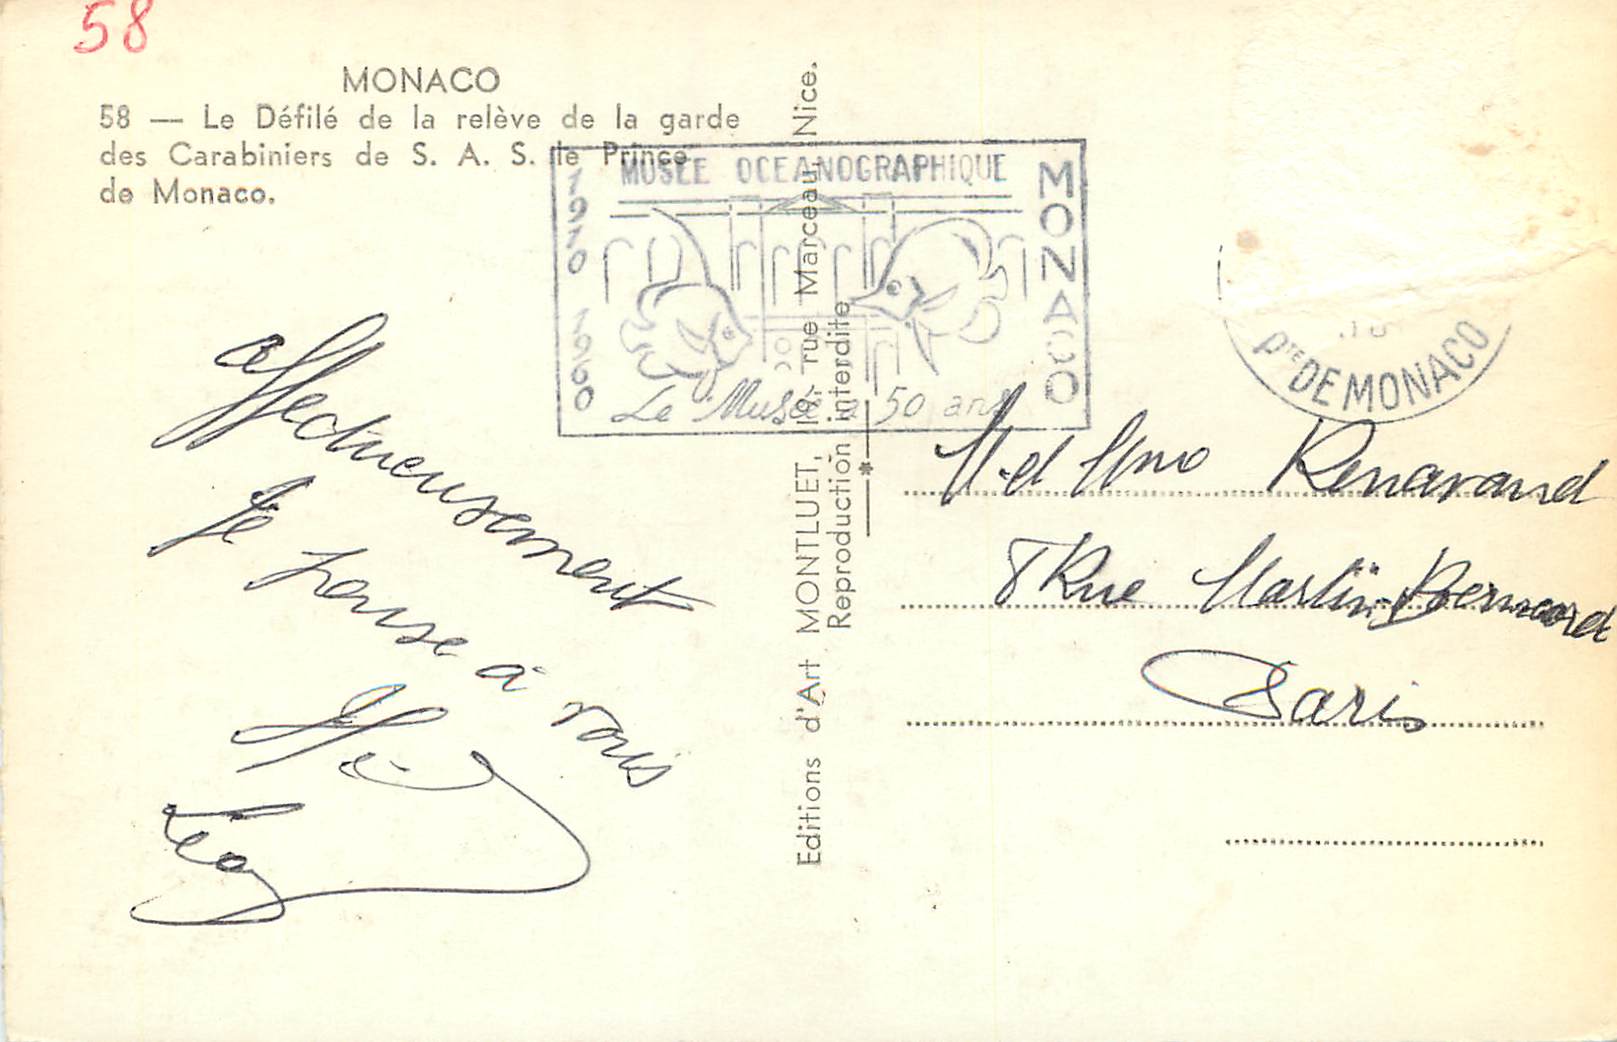 58
MONACO
58 — Le Défilé de la relève de la garde
des Carabiniers de S. A. S. le Prince
de Monaco.
MUSÉE OCEANOGRAPHIQUE
MONACO
1910 1960
Le Musée a 50 ans
Pté DE MONACO
Editions d'Art MONTLUET, 19, rue Marceau, Nice.
Reproduction interdite
affectueusement
Je pense à vous
Léo
M. et Mme Renavand
8 Rue Martin-Bernard
Paris